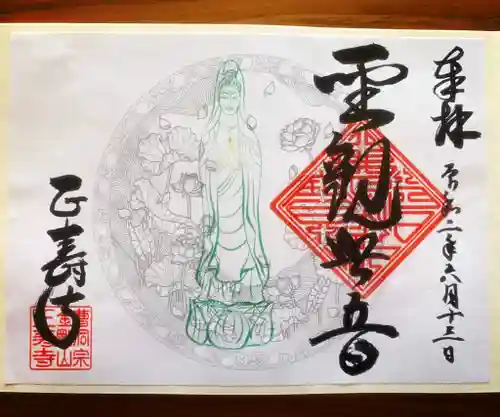 奉拝
令和二年六月十三日
聖観世音
正壽寺
曹洞宗
正壽寺